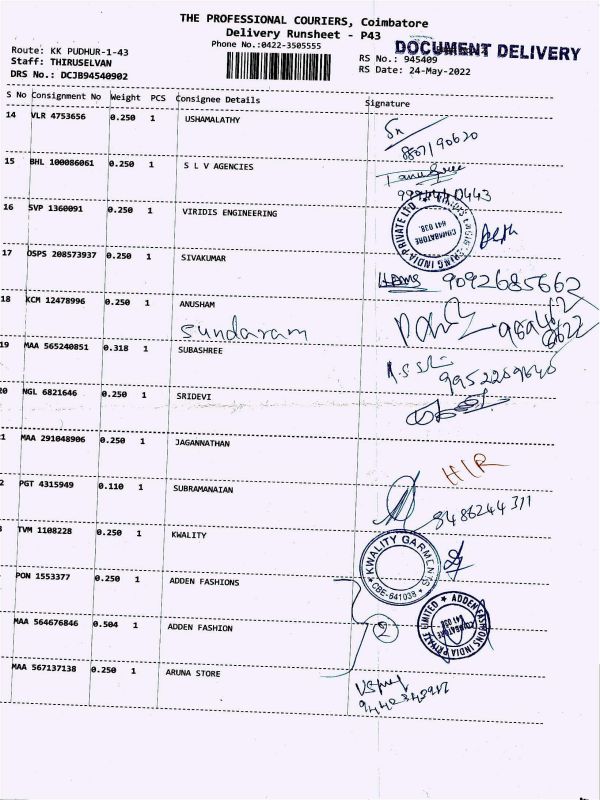 THE PROFESSIONAL COURIERS, Coimbatore
Delivery Runsheet - P43
Phone No.:0422-3505555
DOCUMENT DELIVERY
Route: KK PUDHUR-1-43
Staff: THIRUSELVAN
DRS No.: DCJB94540902
RS No.: 945409
RS Date: 24-May-2022
S No Consignment No Weight PCS Consignee Details Signature
14 VLR 4753656 0.250 1 USHAMALATHY
15 BHL 100086061 0.250 1 S L V AGENCIES
16 SVP 1360091 0.250 1 VIRIDIS ENGINEERING
COIMBATORE 641 038.
17 OSPS 208573937 0.250 1 SIVAKUMAR
9092685662
18 KCM 12478996 0.250 1 ANUSHAM
Sundaram
19 MAA 565240851 0.318 1 SUBASHREE
20 NGL 6821646 0.250 1 SRIDEVI
1 MAA 291048906 0.250 1 JAGANNATHAN
HLR
2 PGT 4315949 0.110 1 SUBRAMANAIAN
KWALITY GARMENTS
CBE-641038
TVM 1108228 0.250 1 KWALITY
PON 1553377 0.250 1 ADDEN FASHIONS
ADDEN FASHIONS INDIA PRIVATE LIMITED
COIMBATORE 641 038
2
MAA 564676846 0.504 1 ADDEN FASHION
MAA 567137138 0.250 1 ARUNA STORE